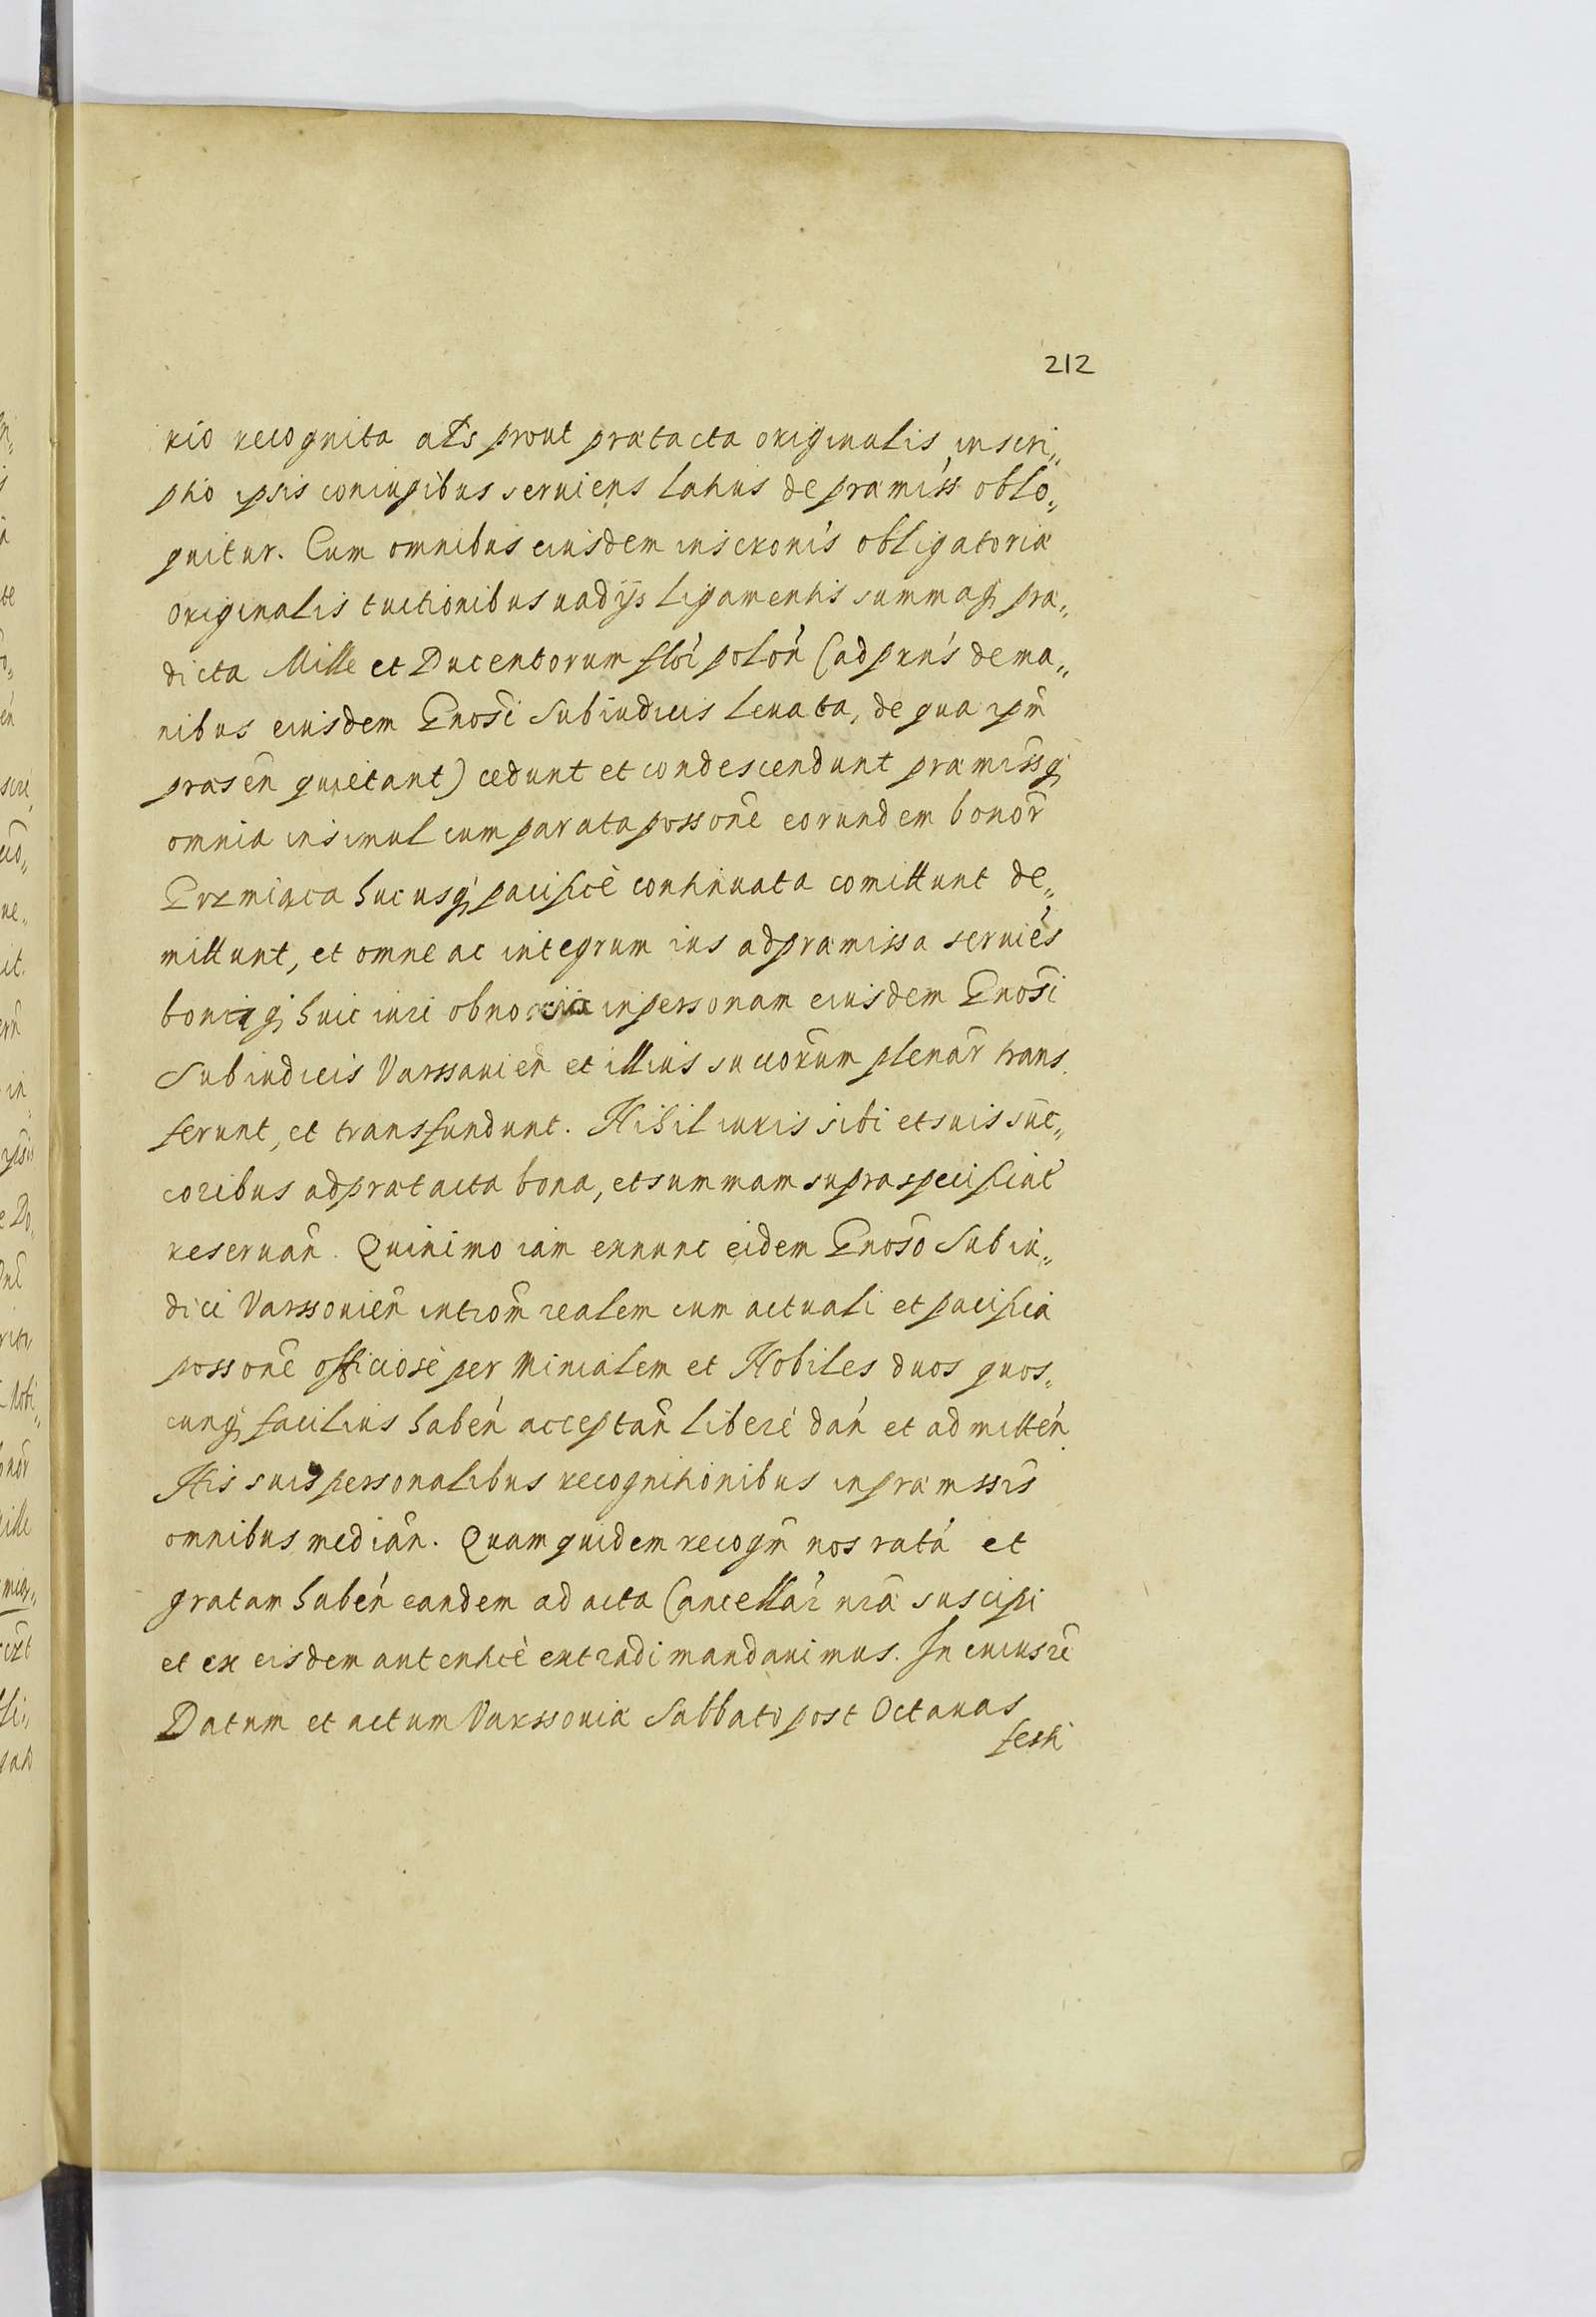 212
rio recognita als prout prætacta originalis inscri„
ptio ipsis coniugibus seruiens latius de præmiss oblo„
quitur. Cum omnibus eiusdem inscronis obligatoriæ
originalis tuitionibus uadijs ligamentis summaq; præ„
dicta Mille et Ducentorum flor polon (ad præns de ma„
nibus eiusdem Gnosi Subiudicis leuata, de qua ipm
præsen quietant) cedunt et condescendunt præmissq;
omnia insimul cum parata possone eorundem bonor
Przmiąca hucusq; pacifice continuata comittunt de„
mittunt, et omne ac integrum ius ad præmissa seruies
bonaq; huic iuri obnoxia in personam eiusdem Gnosi
Subiudicis Varssauien et illius succorum plenar trans
ferunt, et transfundunt. Nihil iuris sibi et suis suc„
coribus ad prætacta bona, et summam supra specificat
reseruan. Quinimo iam exnunc eidem Gnoso Subiu„
dici Varssouien introm realem cum actuali et pacifica
possone officiose per Minialem et Nobiles duos quos„
cunq; facilius haben acceptan libere dan et admitten
His suis personalibus recognitionibus in præmssis
omnibus median. Quam quidem recogm nos rata et
gratam haben eandem ad acta Cancellar nra suscipi
et ex eisdem autentice extradi mandauimus. In cuius rei
Datum et actum Varssouiæ Sabbato post Octauas
festi